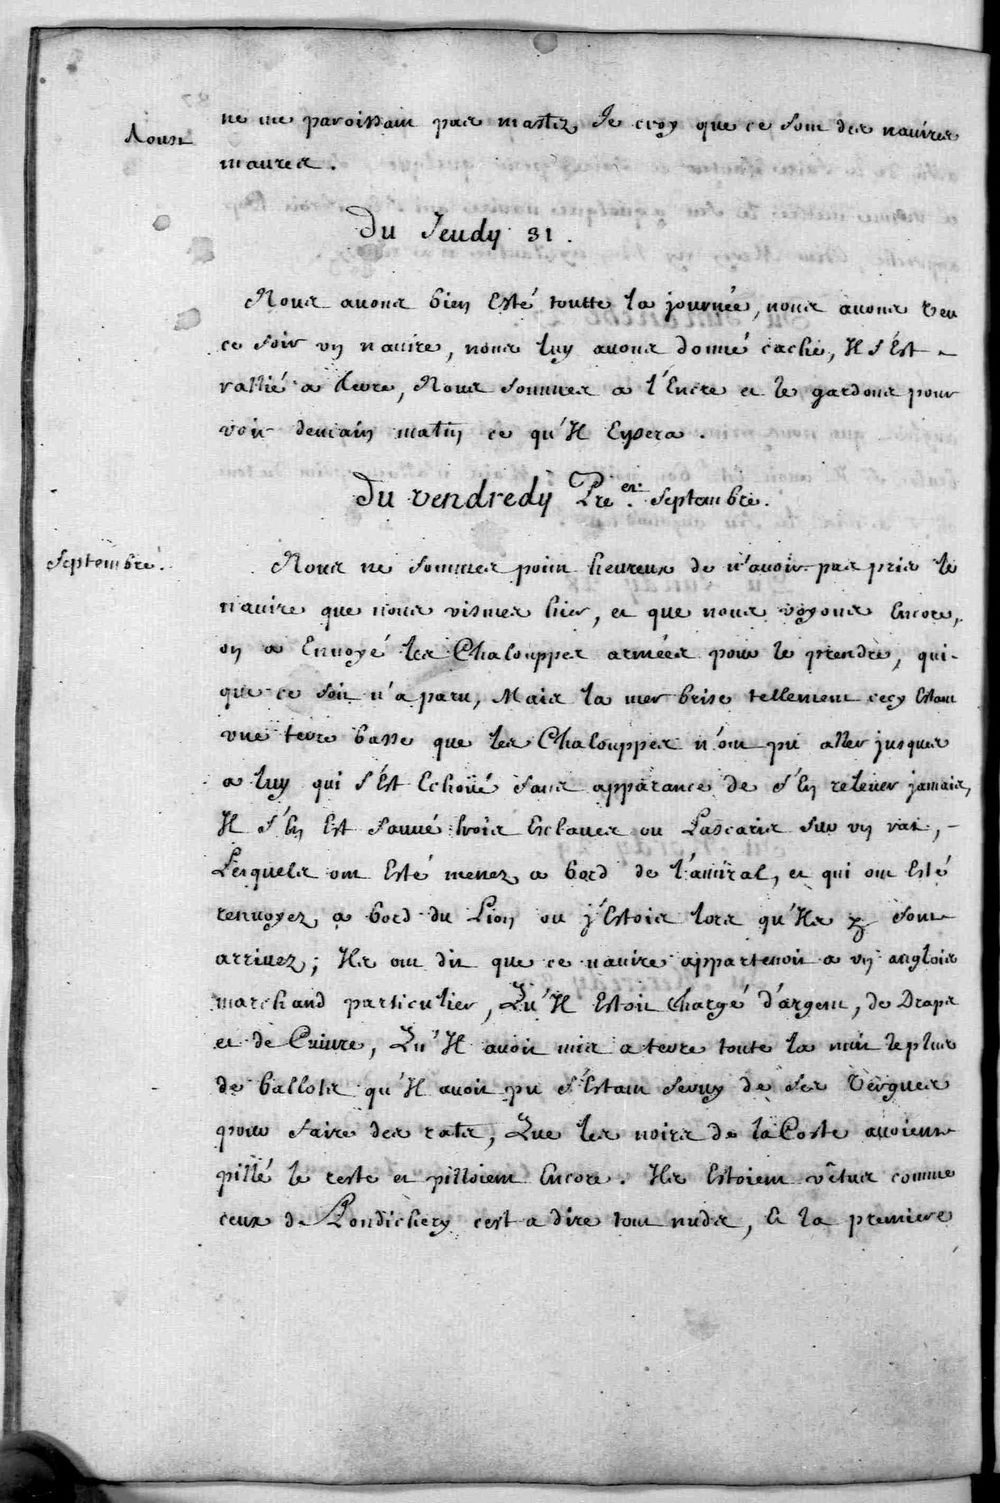 Aoust
ne me paroissoint pas mastez Je croy que ce sont des navires
maures.
Du Jeudy 31.
Nous avons bien Esté toutte la journée, nous avons veu
ce soir un navire, nous luy avons donné cache, Il s'Est
rallié a terre, Nous sommes a l'Encre et le gardons pour
voir demain matin ce qu'Il Enpera.
Du vendredy Pre.er Septembre.
Septembre.
Nous ne sommes point heureux de n'avoir pas pris le
navire que nous vismes hier, et que nous voyons Encore,
on a Envoyé les Chalouppes armées pour le prendre, qui-
que ce soit n'a paru, Mais la mer brise tellement cecy Estant
une terre basse que les Chalouppes n'ont pû aller jusques
a luy qui s'Est Echoüé sans apparance de s'En relever jamais,
Il s'En Est sauvé trois Esclaves ou Lascaris sur un rat,
Lesquels ont Esté menez a bord de l'amiral, et qui ont Esté
renvoyez a bord du Lion ou j'Estois lors qu'Ils y sont
arrivez; Ils ont dit que ce navire appartenoit a un anglois
marchand particulier, Qu'Il Estoit Chargé d'argent, de Draps
et de Cuivre, Qu'Il avoit mis a terre toute la nuit le plus
de ballots qu'Il avoit pû s'Estant servy de ses Vergues
pour faire des rats, Que les noirs de la Coste avoient
pillé le reste et pilloient Encore. Ils Estoient vêtus comme
ceux de Pondichery c'est a dire tout nuds, Et la premiere